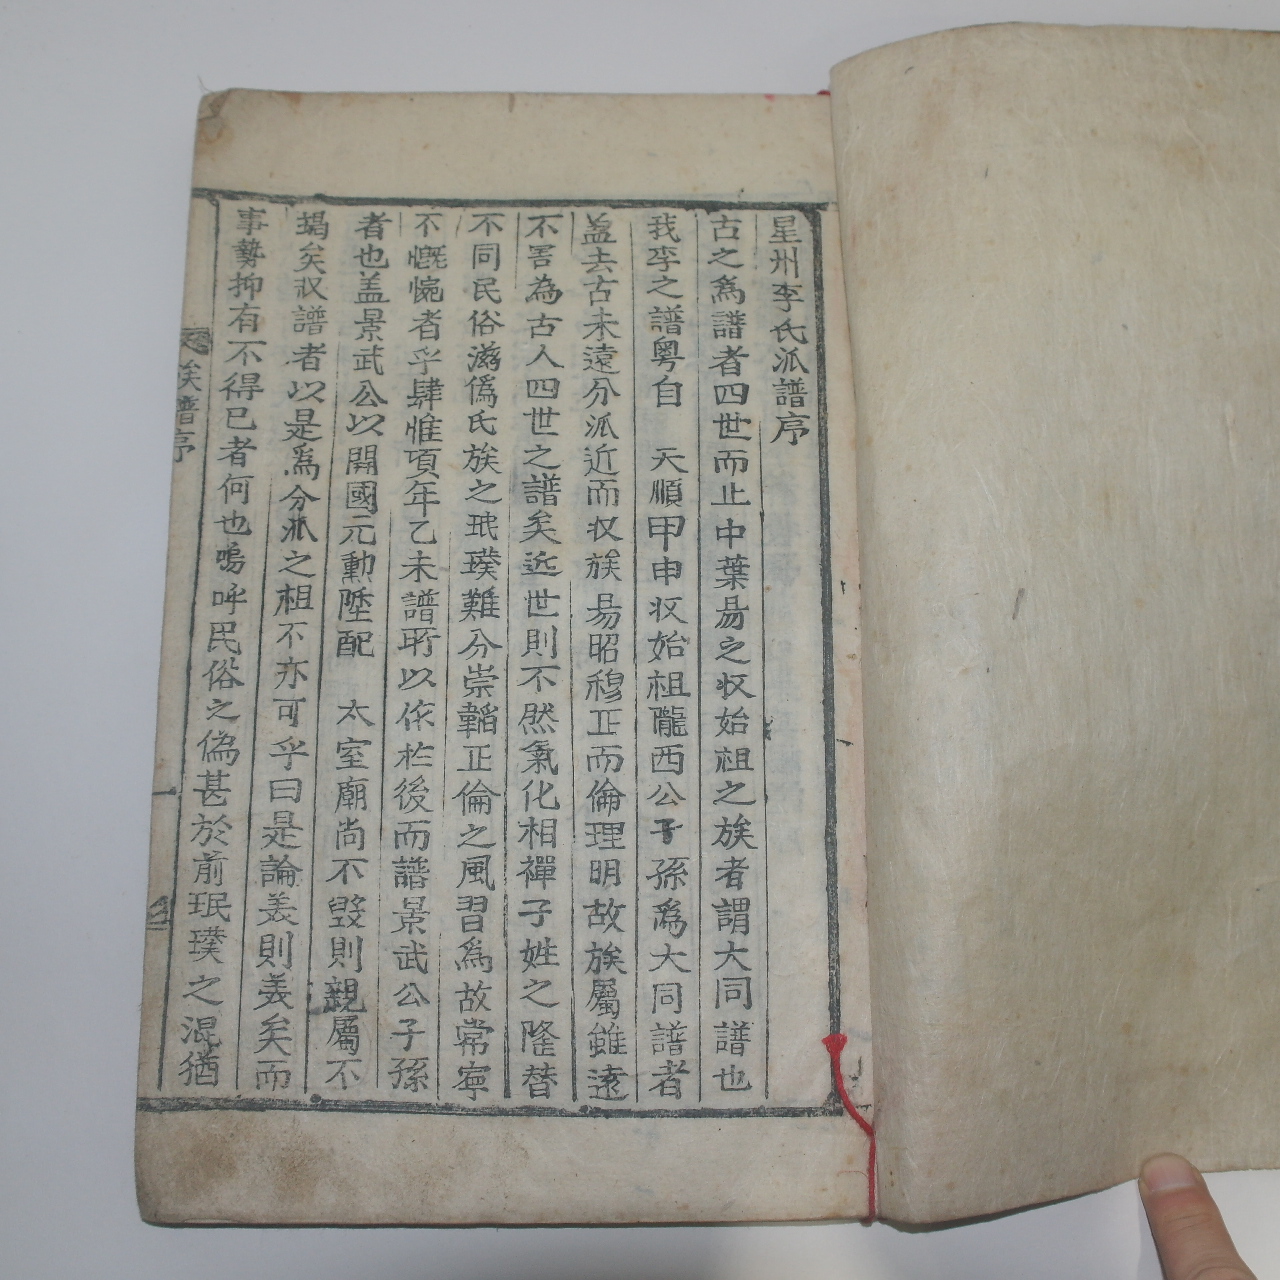 星州李氏派譜序
古之爲譜者四世而止中葉易之収始祖之族者謂大同譜也
我李之譜粤自 天順甲申収始祖隴西公子孫爲大同譜者
盖去古未遠分派近而収族易昭穆正而倫理明故族屬雖遠
不害為古人四世之譜矣近世則不然氣化相禪子姓之隆替
不同民俗滋僞氏族之珉璞難分崇韜正倫之風習爲故常寧
不慨惋者乎肆惟項年乙未譜所以作於後而譜景武公子孫
者也盖景武公以開國元勳陞配 太室廟尚不毀則親屬不
竭矣収譜者以是爲分派之祖不亦可乎曰是論義則義矣而
事勢抑有不得已者何也嗚呼民俗之偽甚於前珉璞之混猶
族譜序
一